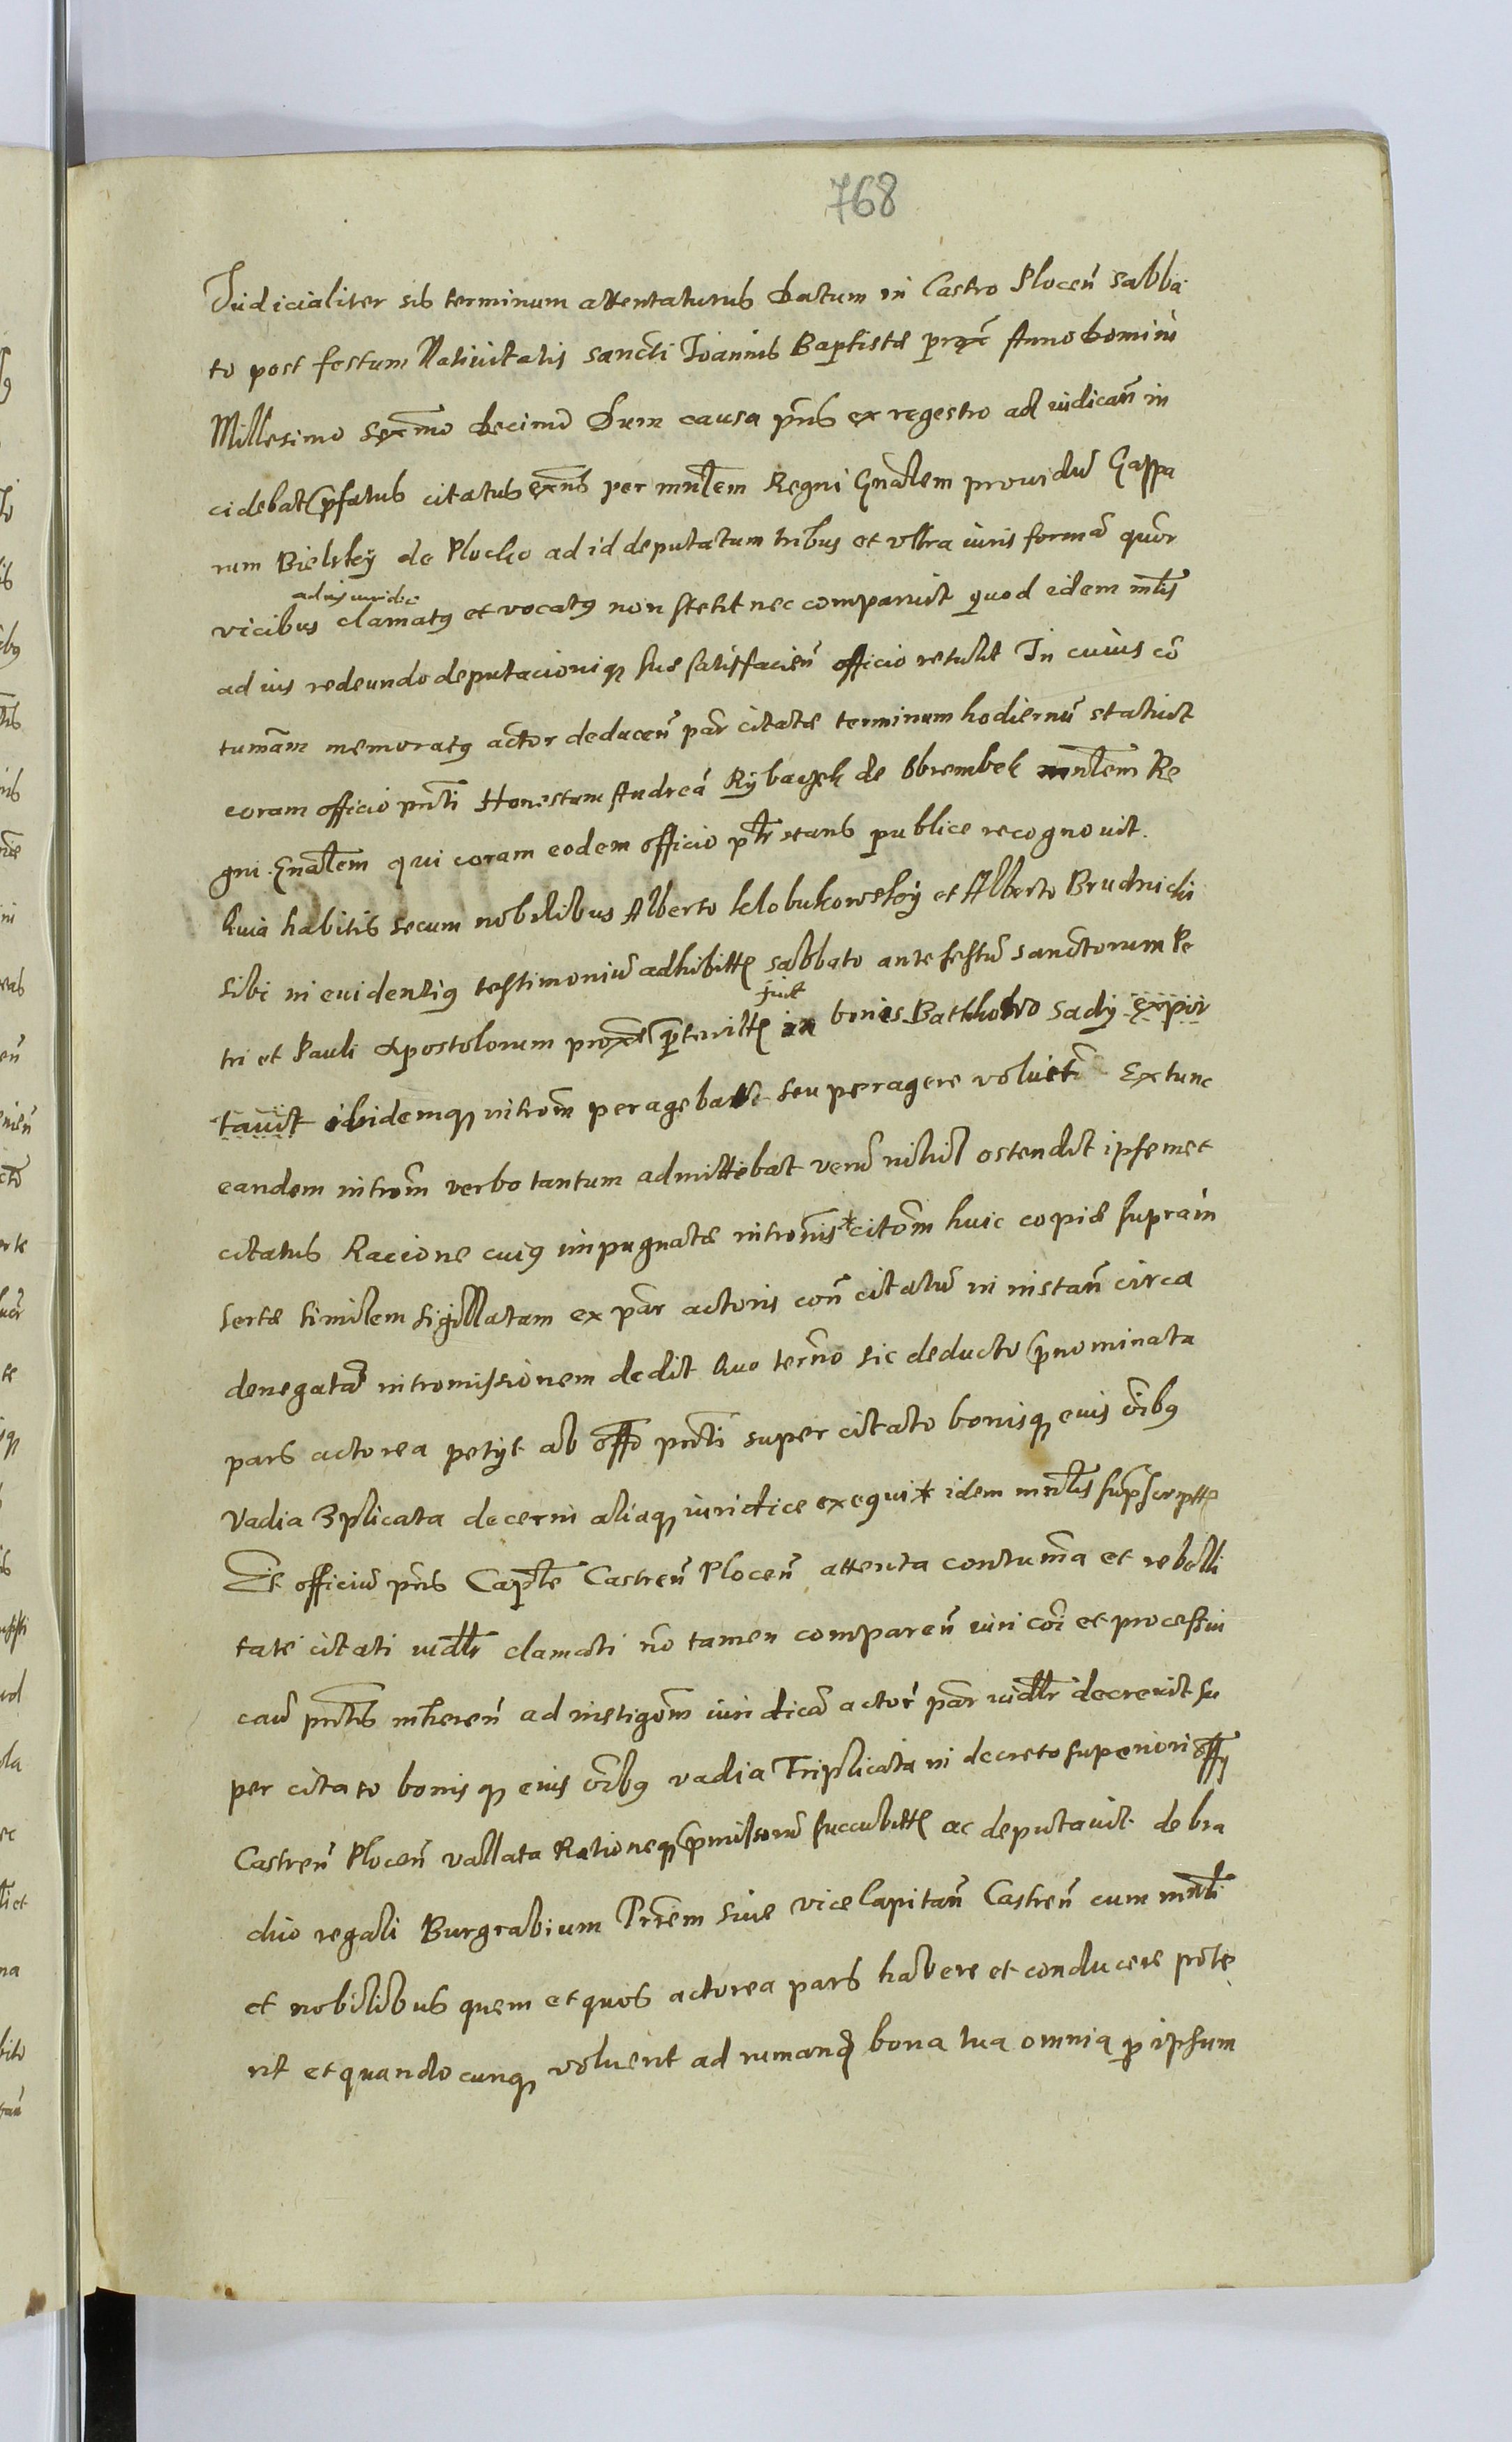 768
Iudicialiter sis terminum attentaturus Datum in Castro Plocen̄ sabba
to post festum Natiuitatis sancti Ioannis Baptistæ prox̄ Anno domini
Millesimo sexm̄o decimo Dum causa pn̄s ex regestro ad iudican̄ in
cidebat p̄fatus citatus exn̄s per mn̄lem Regni Gn̄alem prouidū Gaspa
rum Bielsky de Plocko ad id deputatum tribus et vltra iuris formā quor̄
ad ius iuridic
vicibus clamatꝰ et vocatꝰ non stetit nec comparuit quod idem mn̄lis
ad ius redeundo deputacioniqꝫ suæ satisfacien̄ officio retulit In cuius cō
tumām memoratꝰ actor deducen̄ par̄ citatæ terminum hodiernū statuit
coram officio pn̄ti Honestum Andreā Rybaczek de Obrembek mn̄lem Re
gni Gn̄alem qui coram eodem officio pl̄r stans publice recognouit.
Quia habitis secum nobilibus Alberto Klobukowsky et Alberto Brudnicki
sibi in euidentiꝰ testimoniū adhibitis sabbato ante festū sanctorum Pe
fuit
tri et Pauli Apostolorum proxē p̄teritis in bonis Bathkowo Sady expor
tauit ibidemqꝫ introm̄ peragebat seu peragere voluit Extunc
eandem introm̄ verbo tantum admittebat verū nihil ostendit ipsemet
citatus Racione cuiꝰ impugnatæ introm̄is citom̄ huic copiæ suprain
sertæ similem sigillatam ex par̄ actoris con̄ citatū in instan̄ circa
denegatā intromissionem dedit Quo term̄o sic deducto p̄nominata
pars actorea petyt ab offō pn̄ti super citato bonisqꝫ eius oībꝰ
Vadia 3plicata decerni aliaqꝫ iuridice exequi idem mn̄lis sup̄scriptis
Et officiū pn̄s Capl̄e Castren̄ Plocen̄ attenta contumā et rebelli
tate citati iudl̄r clamati nō tamen comparen̄ iuri cōi et processui
cau̅ pn̄tis inheren̄ ad instigom̄ iuridicā actor̄ par̄ iudl̄r decreuit su
per citato bonisqꝫ eius oībꝰ vadia Triplicata in decreto superiori offy
Castren̄ Plocen̄ vallata Rationeqꝫ p̄missorū succubitis ac deputauit de bra
chio regali Burgrabium Pn̄tem siue vice Capitan̄ Castren̄ cum mn̄li
et nobilibus quem et quos actorea pars habere et conducere pote
rit et quandocunqꝫ voluerit ad rumand̄ bona sua omnia p̄ ipsum